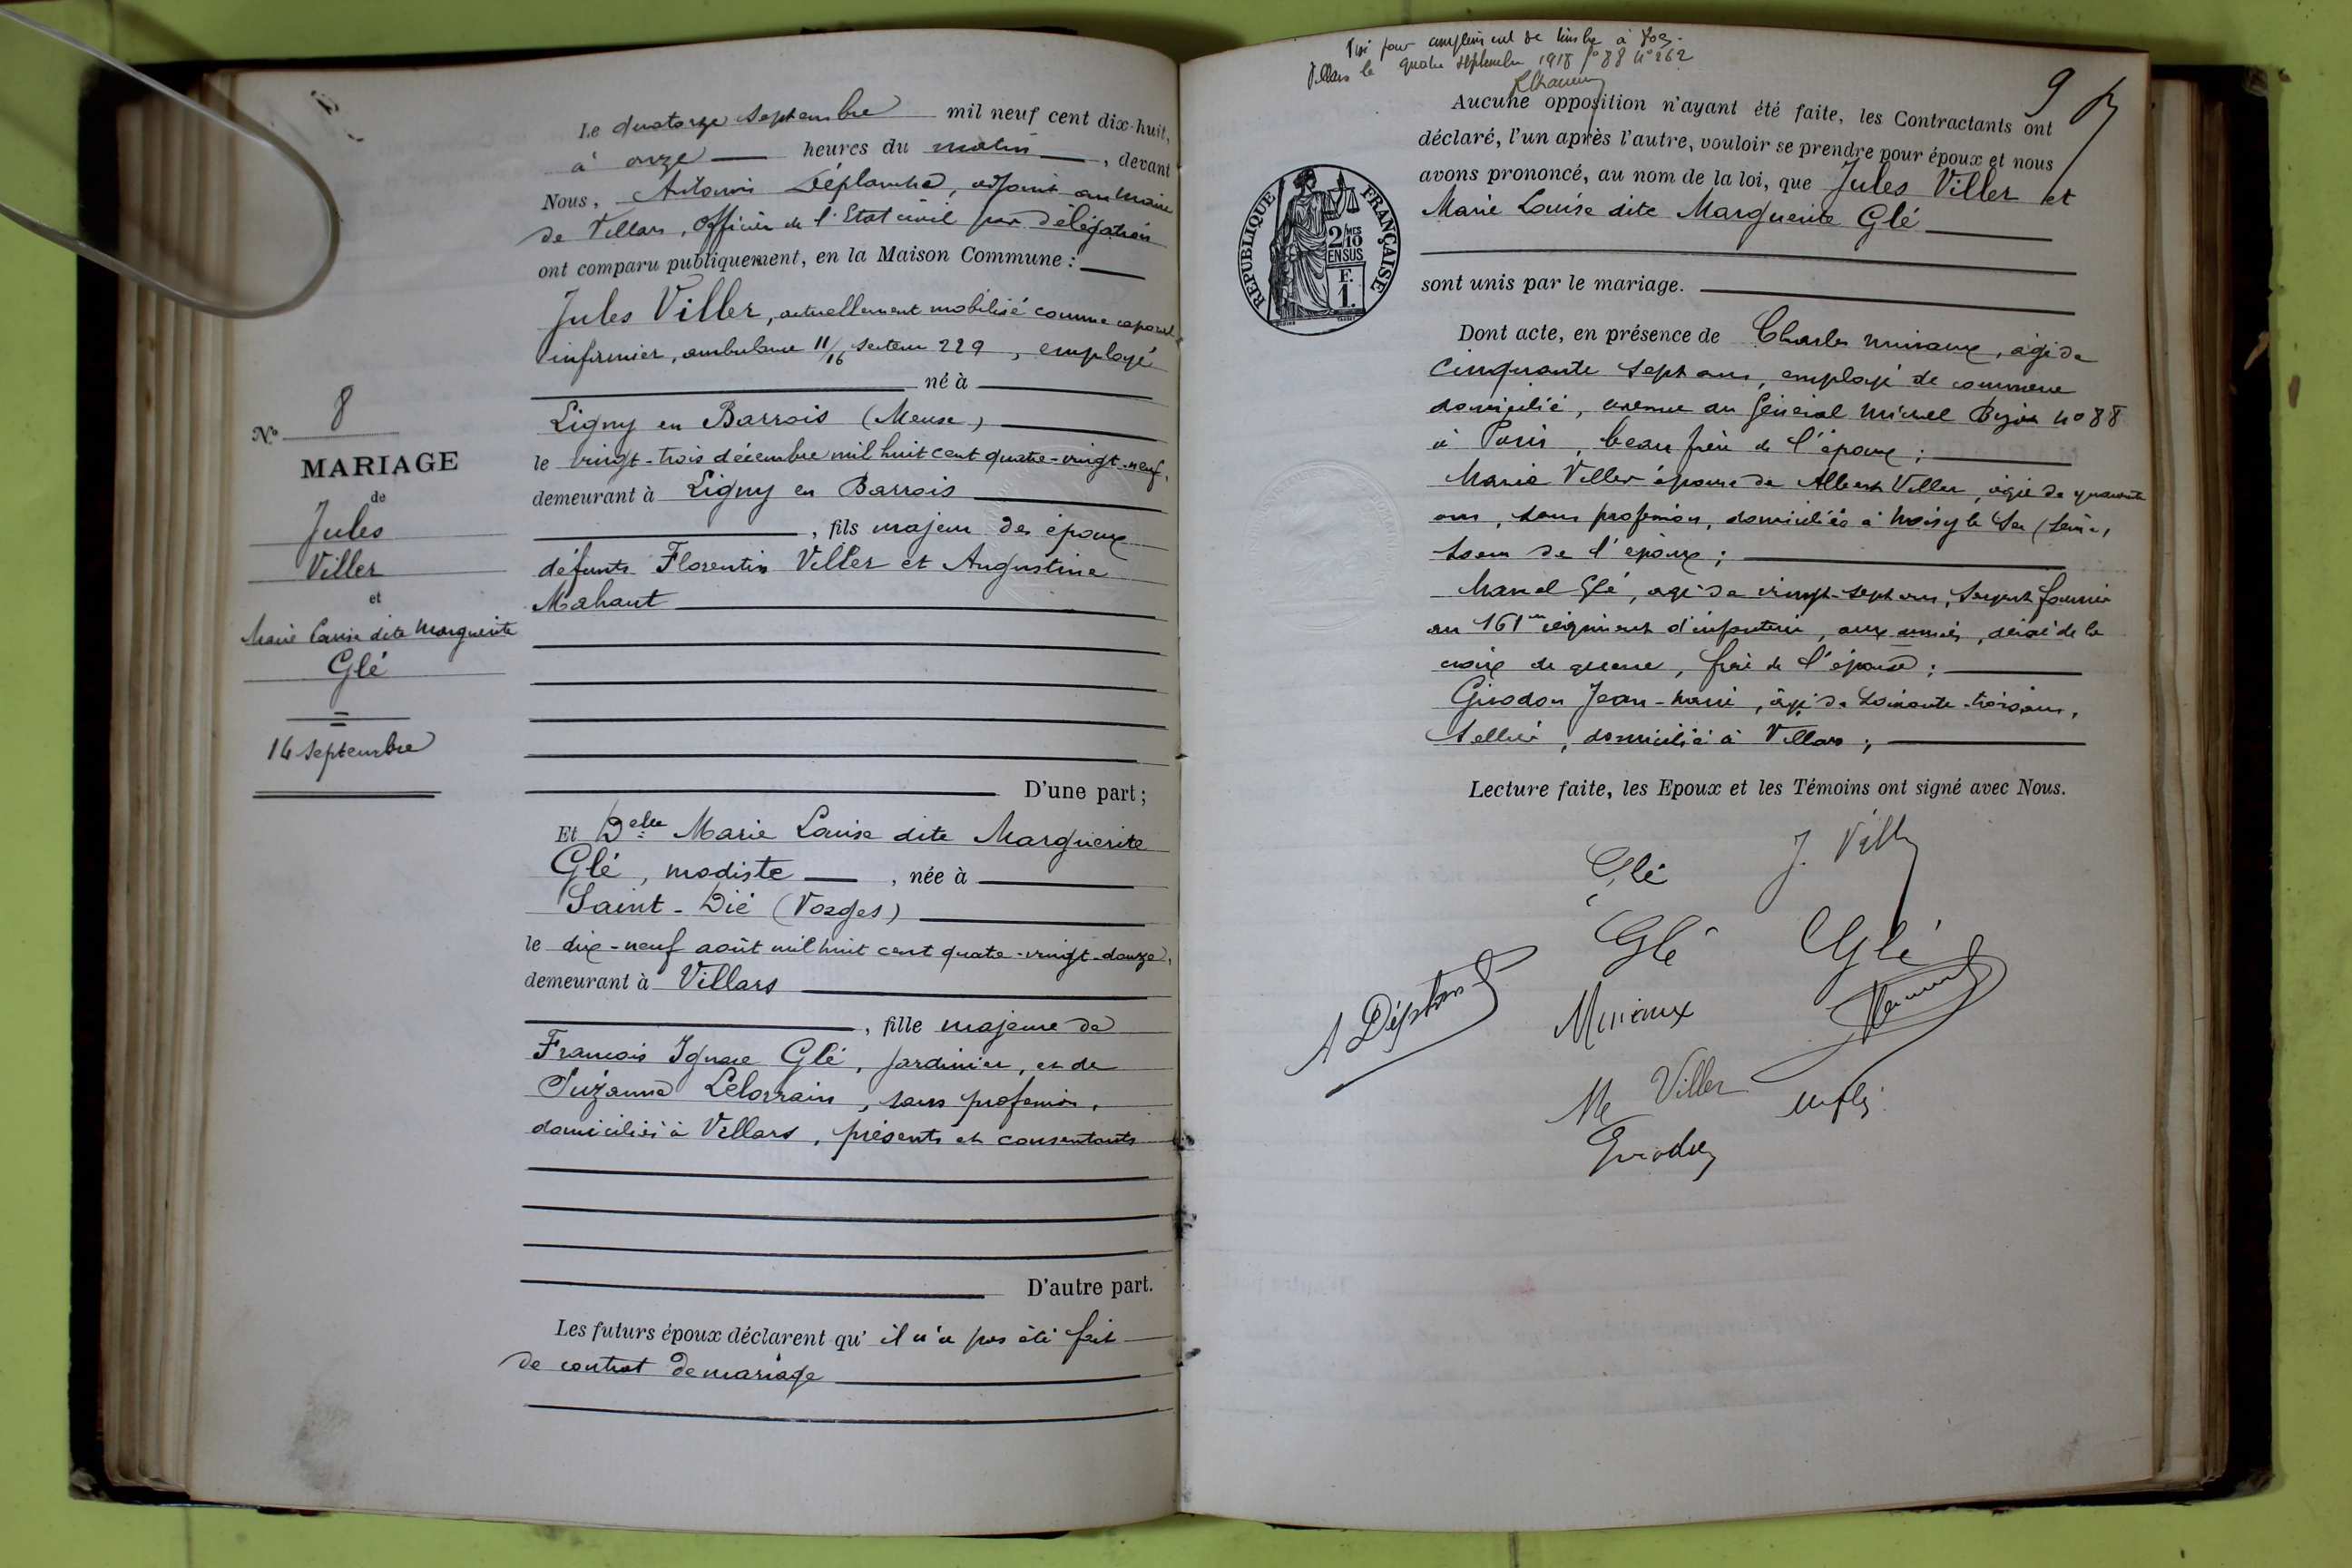 Le quatorze septembre mil neuf cent dix-huit,
à onze heures du matin, devant
Nous, Antonin Déplanche, adjoint au Maire
de Villars, Officier de l'Etat civil par délégation
ont comparu publiquement, en la Maison Commune :
Jules Viller, actuellement mobilisé comme caporal
infirmier, ambulance 11/16 secteur 229, employé
né à
Ligny en Barrois (Meuse)
le vingt-trois décembre mil huit cent quatre-vingt-neuf,
demeurant à Ligny en Barrois
, fils majeur des époux
défunts Florentin Viller et Augustine
Mahaut
D'une part ;
Et Delle Marie Louise dite Marguerite
Glé, modiste, née à
Saint-Dié (Vosges)
le dix-neuf août mil huit cent quatre-vingt-douze,
demeurant à Villars
, fille majeure de
François Ignace Glé, jardinier, et de
Suzanne Lelorrain, sans profession,
domiciliés à Villars, présents et consentants
D'autre part.
Les futurs époux déclarent qu'il n'a pas été fait
de contrat de mariage
N° 8
MARIAGE
de
Jules
Viller
et
Marie Louise dite Marguerite
Glé
14 septembre
Visé pour complément de timbre à
Villars le quatre septembre 1918 f° 88 n° 262
9
Aucune opposition n'ayant été faite, les Contractants ont
déclaré, l'un après l'autre, vouloir se prendre pour époux et nous
avons prononcé, au nom de la loi, que Jules Viller et
Marie Louise dite Marguerite Glé
sont unis par le mariage.
REPUBLIQUE FRANÇAISE
2/10 MES
EN SUS
F.
1.
Dont acte, en présence de Charles Muiraux, âgé de
cinquante sept ans, employé de commerce
domicilié, avenue du Général Michel Bizot n° 88
à Paris, beau frère de l'époux ;
Marie Viller épouse de Albert Viller, âgée de quarante
ans, sans profession, domiciliée à Noisy le Sec (Seine)
soeur de l'époux ;
Marcel Glé, âgé de vingt-sept ans, sergent fourrier
au 161me régiment d'infanterie, aux armées, décoré de la
croix de guerre, frère de l'épouse ;
Girodon Jean-Marie, âgé de soixante-trois ans,
sellier, domicilié à Villars ;
Lecture faite, les Epoux et les Témoins ont signé avec Nous.
Glé J. Viller
Glé Glé
A Déplanche
M Viller
Girodon